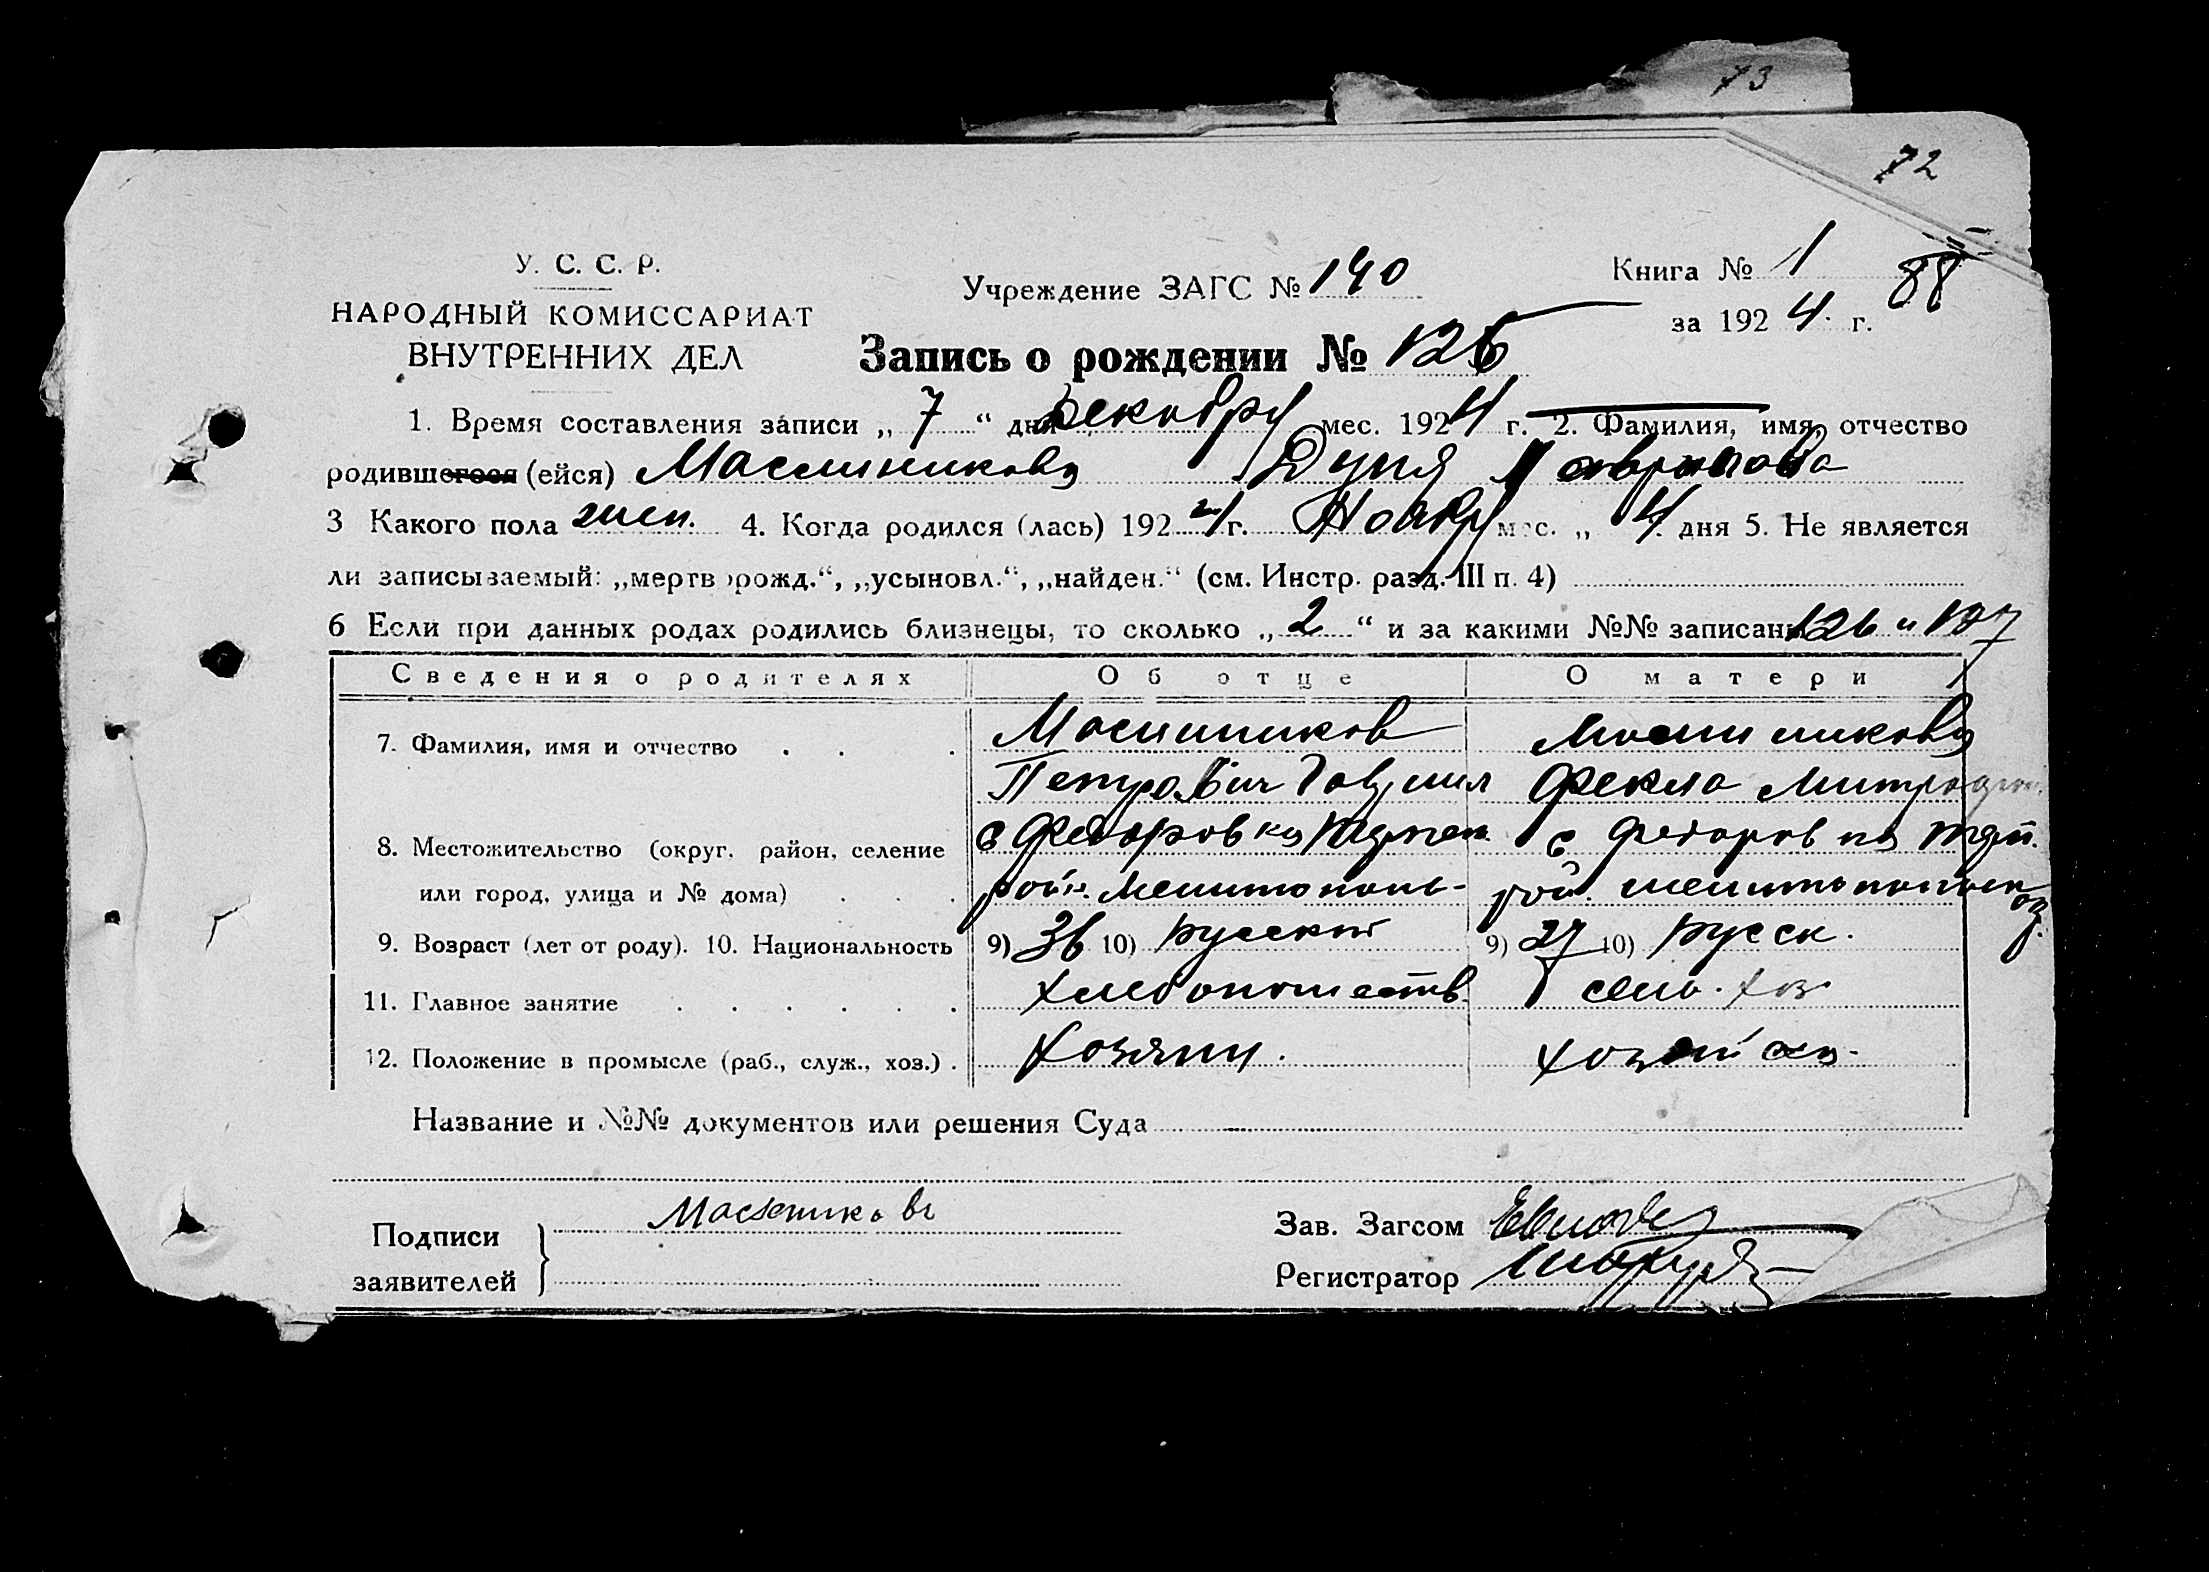 73
72
У. С. С. Р.
НАРОДНЫЙ КОМИССАРИАТ
ВНУТРЕННИХ ДЕЛ
Учреждение ЗАГС № 140
Книга № 1
88
за 1924 г.
Запись о рождении № 126
1. Время составления записи „ 7 “ дня Декабря мес. 1924 г. 2. Фамилия, имя, отчество
родившегося (ейся) Масленикова Дуня Гавриловна
3 Какого пола жен. 4. Когда родился (лась) 1924 г. Ноября мес. „ 4 дня 5. Не является
ли записываемый: „мертворожд.“, „усыновл.“, „найден.“ (см. Инстр. разд. III п. 4)
6 Если при данных родах родились близнецы, то сколько „ 2 “ и за какими №№ записаны 126 и 127
Сведения о родителях Об отце О матери
7. Фамилия, имя и отчество . . . Маслиников Маслиникова
Петрович Гаврил Фекла
8. Местожительство (округ, район, селение с Федоровка с Федоровка
или город, улица и № дома) . . . рой. Мелитополь- рой.
9. Возраст (лет от роду). 10. Национальность 9) 36 10) Русский 9) 27 10) Русск.
11. Главное занятие . . . . . . хлебопашеств. сель. хоз.
12. Положение в промысле (раб., служ., хоз.) . хозяин. хозяйка.
Название и №№ документов или решения Суда
Подписи
заявителей
Зав. Загсом
Регистратор